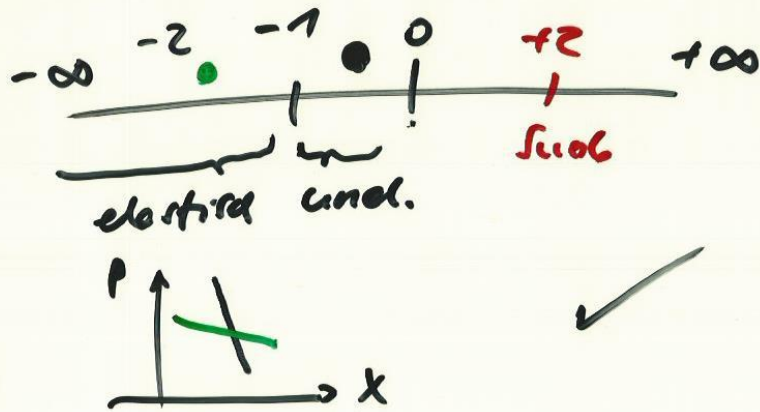 -∞ -2 -1 0 +2 +∞
Snob
elastisch unel.
P
X